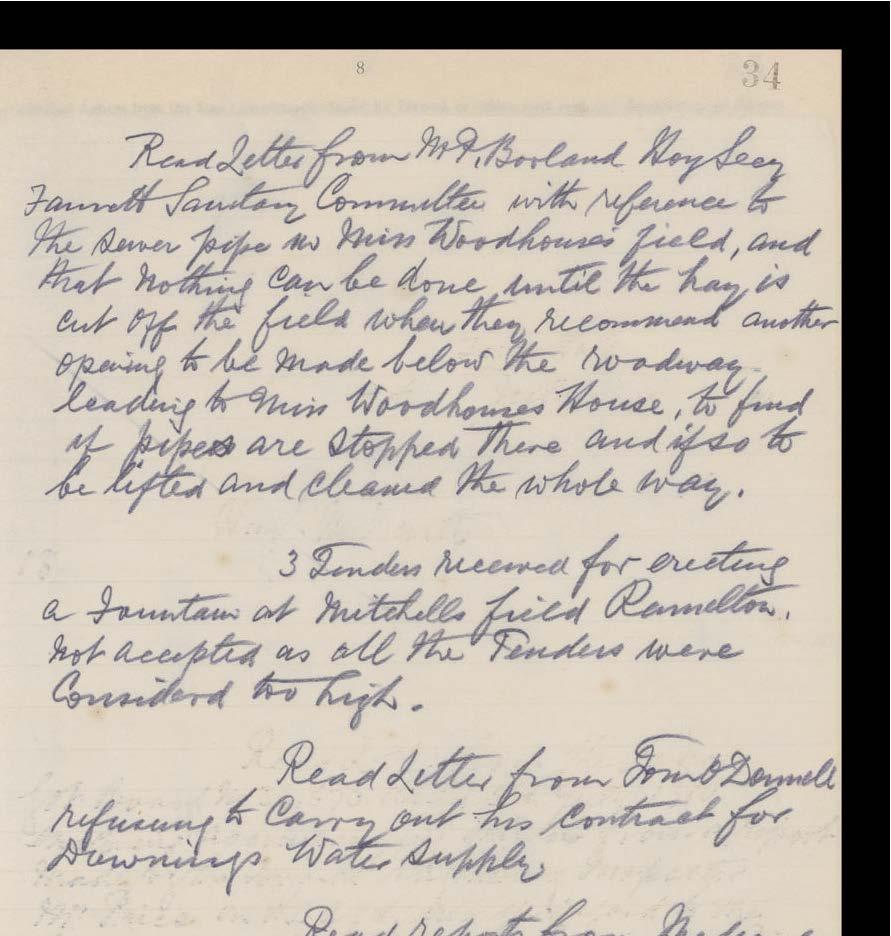 8
34
Read Letter from Mr P. Borland Hoy Secy
Fanvett Sanitary Committee with reference to
the sewer pipe in Miss Woodhouses field, and
that nothing can be done until the hay is
cut off the field when they recommend another
opening to be made below the roadway
leading to Miss Woodhouses House, to find
if pipes are stopped there and if so to
be lifted and cleaned the whole way.
3 Tenders received for erecting
a Fountain at Mitchells field Ramelton.
not accepted as all the Tenders were
Considerd too high.
Read Letter from Tom O Donnell
refusing to Carry out his contract for
Downings Water Supply
Read report from